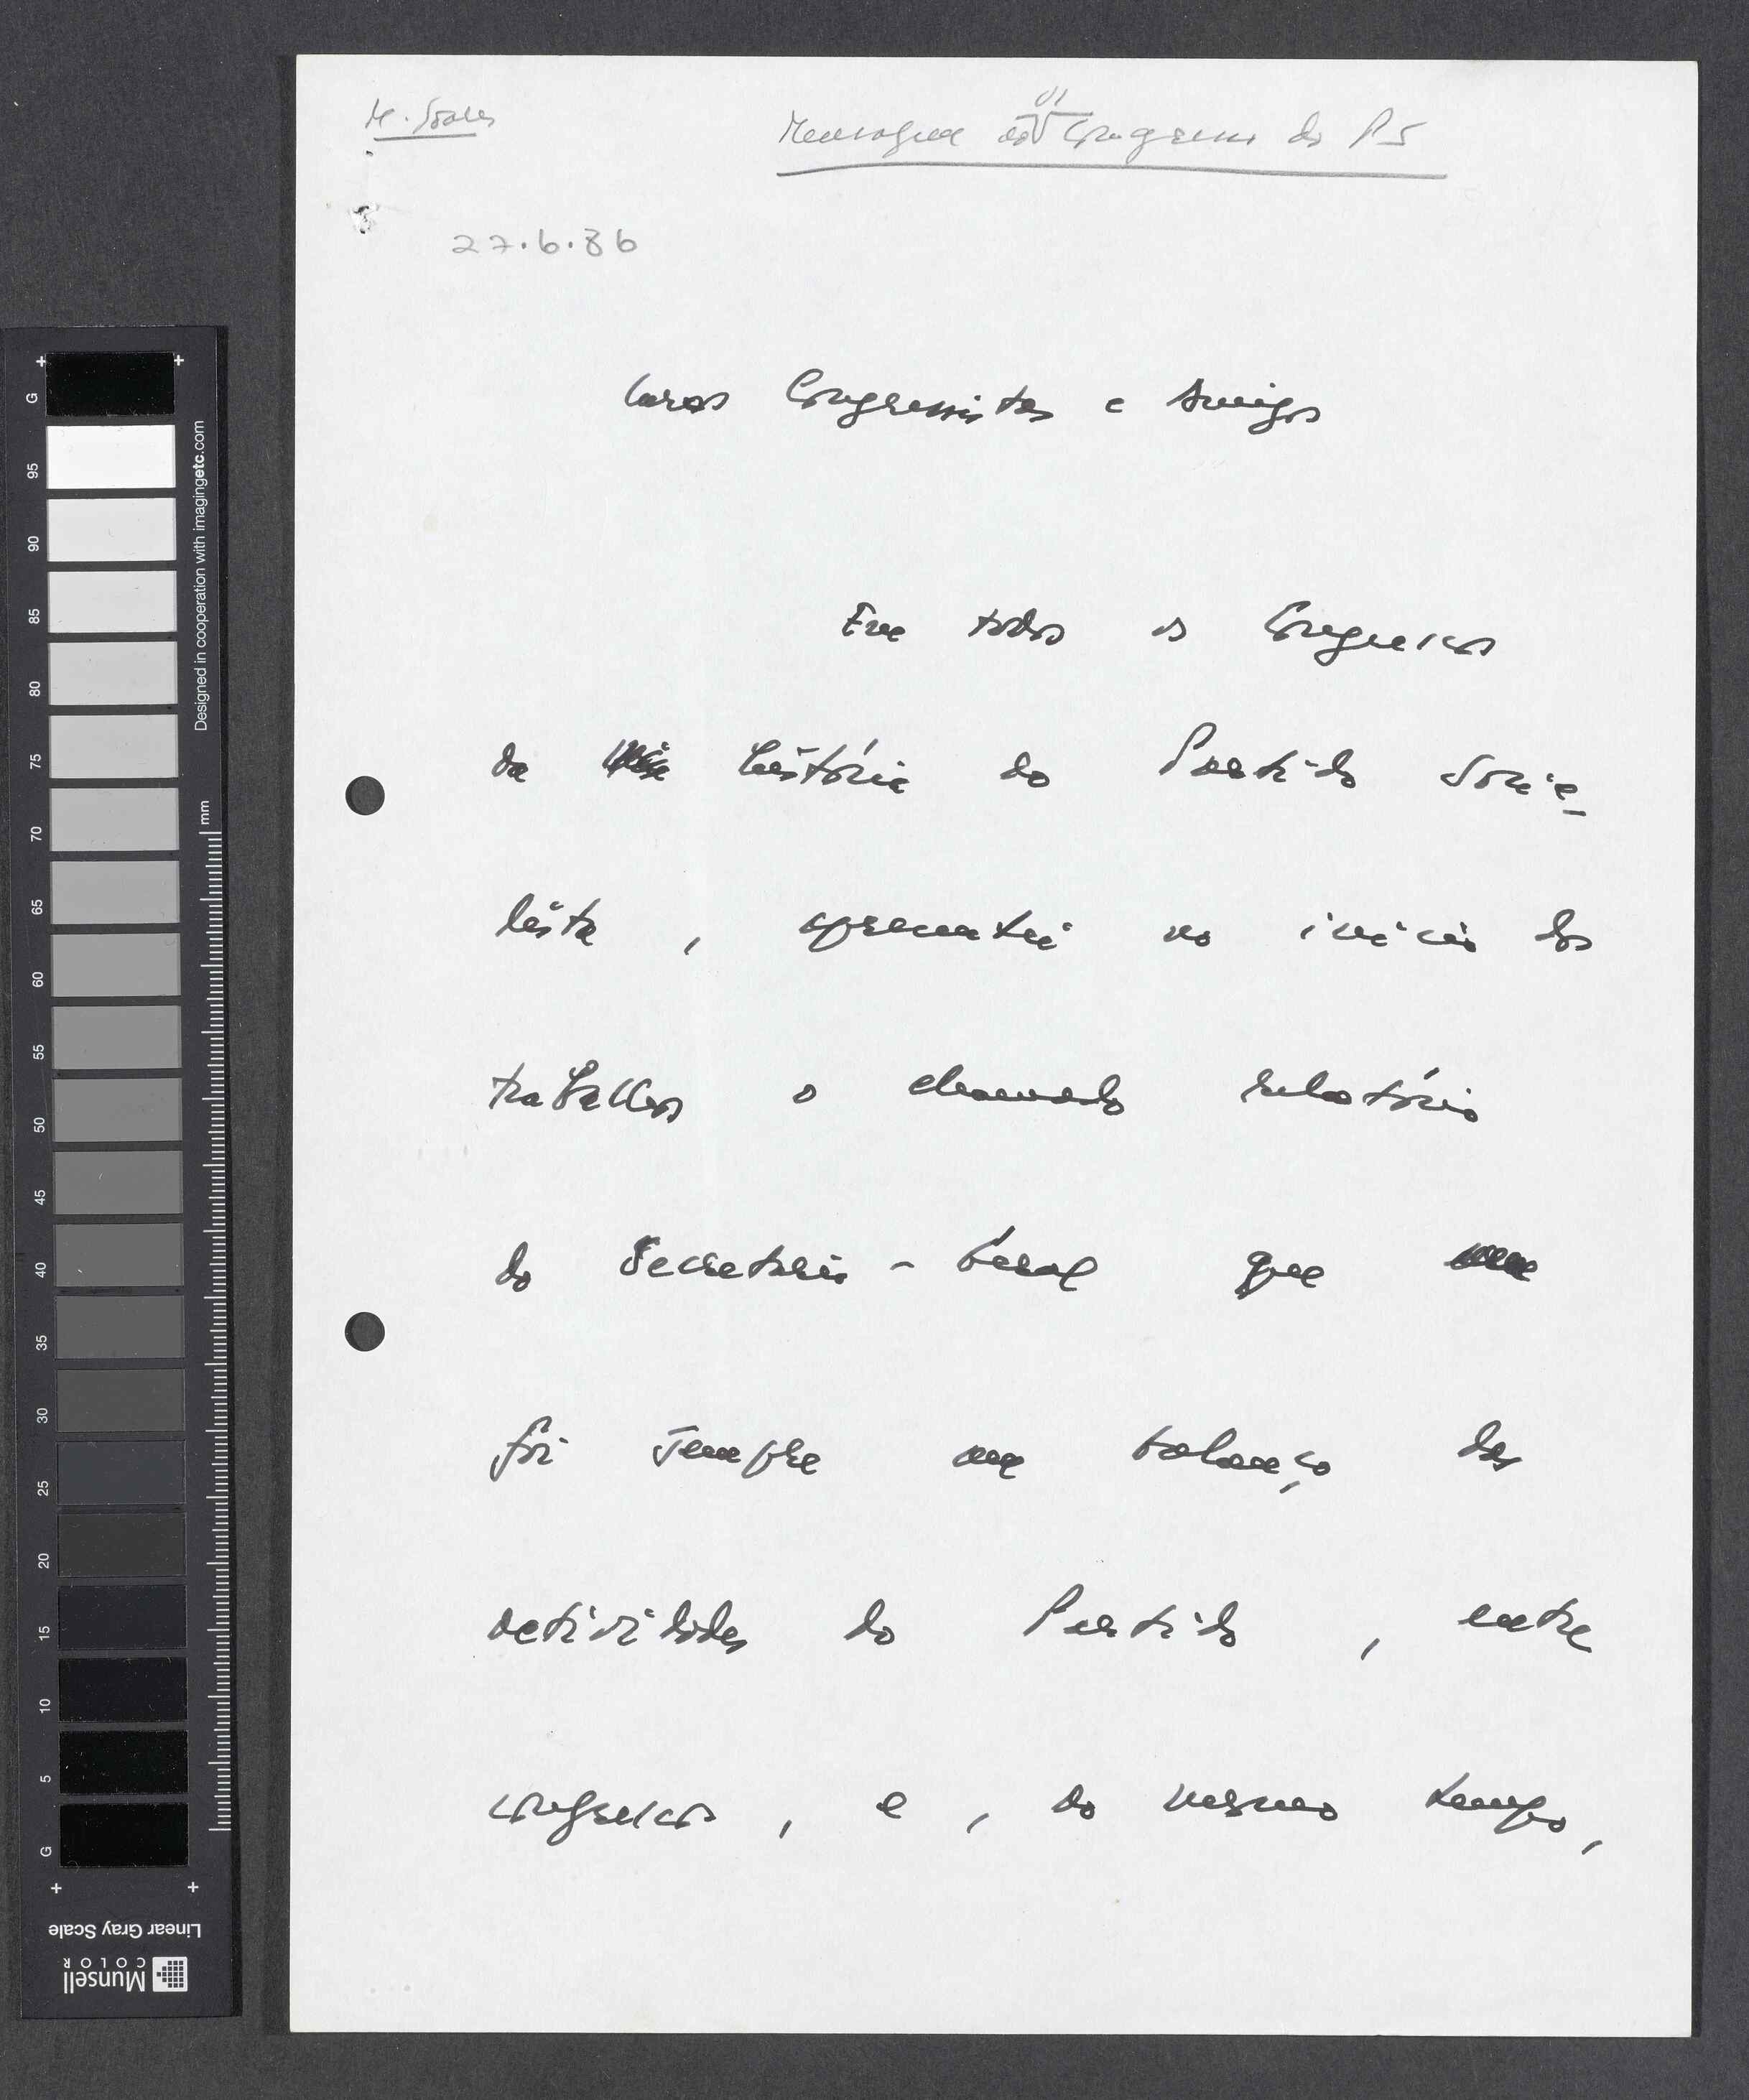 M. Soares
Mensagem ao VI Congresso do PS
27.6.86
Caros Congressistas e Amigos
Em todos os Congressos
da história do Partido Socia-
lista, apresentei no início dos
trabalhos o chamado relatório
do Secretário-Geral que
foi sempre um balanço das
actividades do Partido, entre
congressos, e, ao mesmo tempo,
G
95
90
85
80
75
70
65
60
55
50
45
40
35
30
25
20
15
10
5
G
Designed in cooperation with imagingetc.com
mm
Linear Gray Scale
Munsell
COLOR